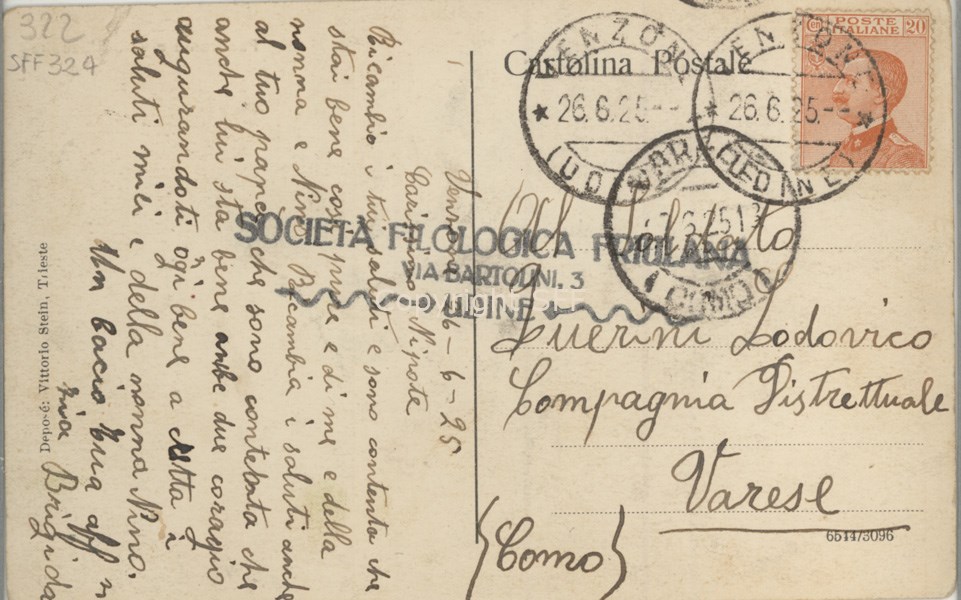 322
SFF324
Cartolina Postale
POSTE ITALIANE 20
cen
VENZONE
26.6.25.--
(UDINE)
VENZONE
26.6.25.--
(UDINE)
VARESE
(COMO)
SOCIETÀ FILOLOGICA FRIULANA
VIA BARTOLINI, 3
UDINE
copyright
Venzone 26-6-25
Carissimo Nipote
Ricambio i tuoi saluti e sono contenta che
stai bene così pure e di me e della
nonna e Nino Ricambia i saluti anche
al tuo papà che sono contenta che
anche lui sta bene ambe due coragio
augurandoti ogi bene a
saluti miei e della nonna Nino.
Un bacio tua aff
zia Brigida
Al soldato
Guerini Lodovico
Compagnia Distrettuale
Varese
(Como)
654473096
Deposé: Vittorio Stein, Trieste